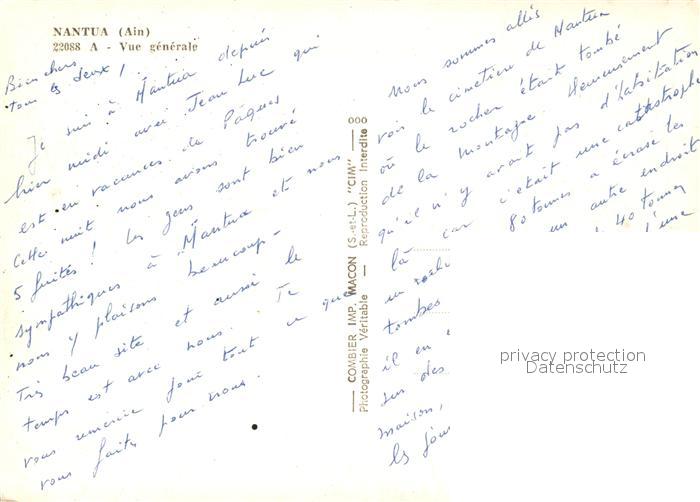 NANTUA (Ain)
22088 A - Vue générale
Bien chers
tous les deux !
Je suis à Nantua depuis
hier midi avec Jean Luc qui
est en vacances de Pâques
Cette nuit nous avons trouvé
5 fuités ! Les gens sont bien
sympathiques à Nantua et nous
nous y plaisons beaucoup -
Très beau site et aussi le
temps est avec nous. Je
vous remercie pour tout ce que
vous faites pour nous.
COMBIER IMP. MACON (S.-et-L.) "CIM"
Photographie Véritable — Reproduction Interdite
Nous sommes allés
voir le cimetière de Nantua
où le rocher était tombé
de la montagne. Heureusement
qu'il n'y avait pas d'habitation
là car c'était une catastrophe
un 80 tonnes a écrasé les
tombes un autre endroit
il en 40 tonnes
sur des l'une
maison,
les jou
privacy protection
Datenschutz